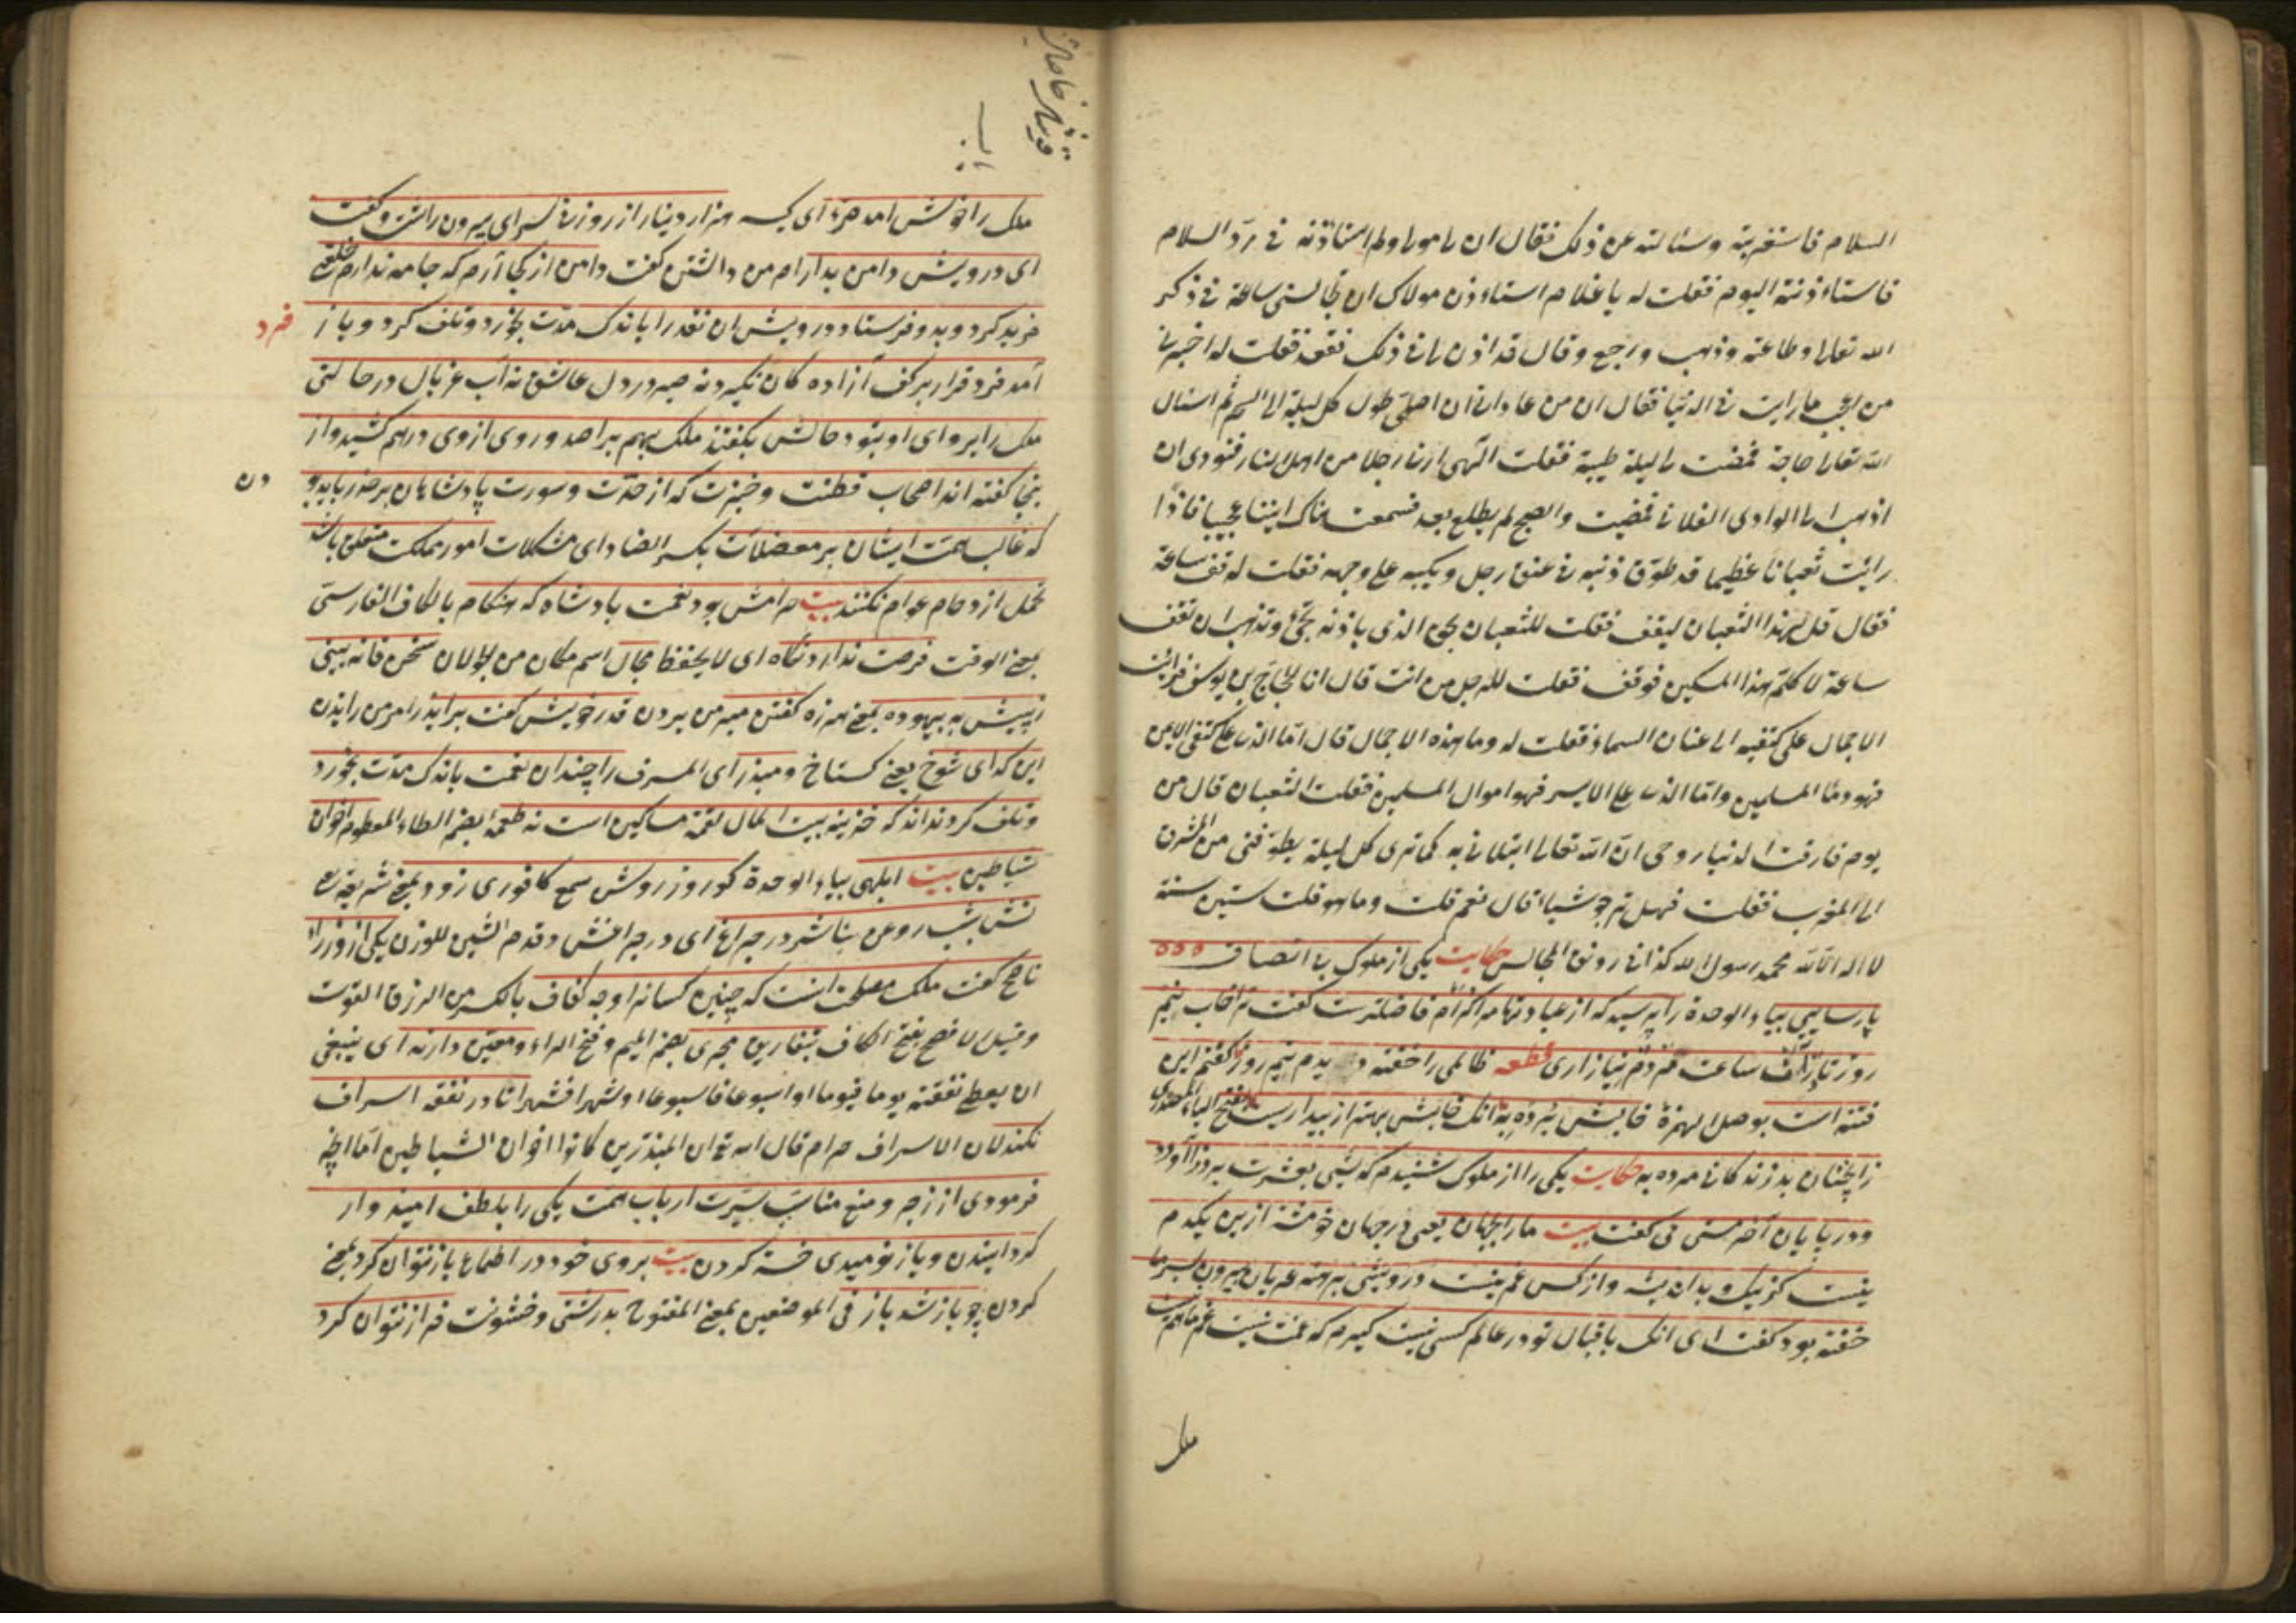 السلام فاستغربته وسئالته عن ذلك فقال ان لى مولى ولم استاذنه فى رد السلام
فاستاءذنته اليوم فقلت له يا غلام استاءذن مولاك ان تجالسنى ساعة فى ذكر
الله تعالى وطاعته وذهب ورجع وقال قد اذن لى فى ذلك فقعد فقلت له اخبرنى
من اعجب ما رايت فى الدنيا فقال ان من عاداتى ان اصلى طول كل ليلة الى السحر ثم اسئال
الله تعالى حاجة فمضت لى ليلة طيبة فقلت الهى ارنى رجلا من اهل النار فنودى ان
اذهب الى الوادى الفلانى فمضيت والصبح لم يطلع بعد فسمعت هناك انينا عجيبا فاذا
رايت ثعبانا عظيما قد طوق ذنبه فى عنق رجل ويكبه على وجهه فقلت له قف ساعة
فقال قل لهذا الثعبان ليقف فقلت للثعبان بحق الذى باذنه تجئ وتذهب ان تقف
ساعة لاكلم هذا المسكين فوقف فقلت للرجل من انت قال انا الحجاج بن يوسف فرايت
الاجمال على كتفيه الى عنان السماء فقلت له وما هذه الاجمال قال اما الذى على كتفى الايمن
فهو دماء المسلمين واما الذى على الايسر فهو اموال المسلمين فقلت الثعبان قال من
يوم فارقت الدنيا روحى ان الله تعالى ابتلانى به كما ترى كل ليلة يطوفنى من المشرق
الى المغرب فقلت فهل ترجو شياء قال نعم قلت وما هو قلت ستين سنة
لا اله الا الله محمد رسول الله كذا فى رونق المجالس حكايت يكى از ملوك بى انصاف
پارسايى بياء الوحدة را پرسيد كه از عبادتها مر اكدام فاضلترست كفت ترا خواب نيم
روز تا در آن ساعت مردم نيازارى قطعه ظالمى را خفته ديدم نيم روز كفتم اين
فتنه است بوصل الهمزة خوابش برده به آنكه خوابش بهتر از بيداريست
آنچنان بد زندكانى مرده به حكايت يكى را از ملوك شنيدم كه شبى بعشرت بروز آورد
ودر پايان آخر مستى مى كفت بيت ما را بجهان يعنى در جهان خوشتر ازين يكدم
نيست كز نيك و بد انديشه واز كس غم نيست درويشى برهنه عريان بيرون بسرما
خفته بود كفت اى آنكه باقبال تو در عالم كسى نيست كيرم كه غمت نيست غم ما هم نيست
ملك
ملك را خوش آمد صرة اى كيسه هزار دينار از روزن سراى بيرون داشت وكفت
اى درويش دامن بدار امر من داشتن كفت دامن از كجا آرم كه جامه ندارم خلعتى
مزيد كرد وبدو فرستاد درويش ان نقد را باندك مدت بخورد وتلف كرد وباز
فرد
آمد فرد قرار بر كف آزاده كان نكيرد نه صبر در دل عاشق نه آب غربال در حالتى
ملك را پرواى او نبود حالش بكفتند ملك بهم برآمد وروى ازوى درهم كشيد واز
ينجا كفته اند اصحاب فطنت وخبرت كه از حدت وسورت پادشاهان برحذر بايد بو
دن
كه غالب همت ايشان بر معضلات بكسر الضاد اى مشكلات امور مملكت متعلق باشد
تحمل ازدحام عوام نكنند بيت حرامش بود نعمت پادشاه كه هنكام بالكاف الفارسى
بمعنى الوقت فرصت ندارد نكاه اى لا يحفظ مجال اسم مكان من الجولان سخن تا نه بينى
ز پيش به بيهوده بمعنى هرزه كفتن مبر من بردن قدر خويش كفت برانيد امر من رانيدن
اين كداى شوخ يعنى كستاخ ومبذر اى المسرف را چندان نعمت باندك مدت بخورد
وتلف كرد نداند كه خزينه بيت المال لقمه مساكين است نه طعمه بضم الطاء المطعوم اخوان
شياطين بيت ابلهى بياء الوحدة كو روز روشن شمع كافورى نهد بمعنى
كش بشب روغن نباشد در چراغ اى در چراغش وقدم الشين للوزن يكى از وزراء
ناصح كفت ملك مصلحت آنست كه چنين كسان را وجه كفاف بالكسر من الرزق القوت
وقيل لا فصح بفتح الكاف بتفاريق مجرى بضم الميم وفتح الراء ومعين دارند اى ينبغى
ان يعطى نفقته يوما فيوما او اسبوعا فاسبوعا او شهرا فشهرا تا در نفقه اسراف
نكند لان الاسراف حرام قال الله تع ان المبذرين كانوا اخوان الشياطين اما آنچه
فرمودى از زجر ومنع مناسب سيرت ارباب همت يكى را بلطف اميدوار
كردانيدن وباز نوميدى خسته كردن بيت بروى خود در اطماع باز نتوان كرد بمعنى
كردن چو باز شد باز فى الموضعين بمعنى المفتوح بدرشتى وخشونت فراز نتوان كرد